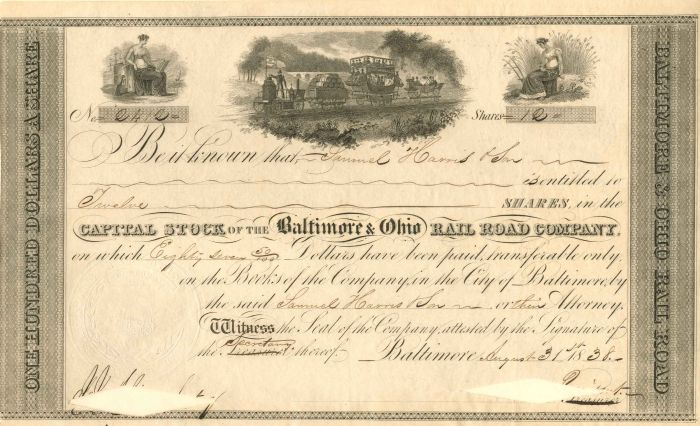 ONE HUNDRED DOLLARS A SHARE
No. 2412
Shares 12
Be it known that, Samuel Harris & Son
is entitled to
Twelve SHARES, in the
CAPITAL STOCK OF THE Baltimore & Ohio RAIL ROAD COMPANY,
on which Eighty seven 50/100 Dollars have been paid, transferable only,
on the Books of the Company, in the City of Baltimore, by
the said Samuel Harris & Son or their Attorney.
Witness the Seal of the Company, attested by the Signature of
Secretary
the Treasurer thereof. Baltimore August 31st 1836
Treasurer
BALTIMORE & OHIO RAIL ROAD